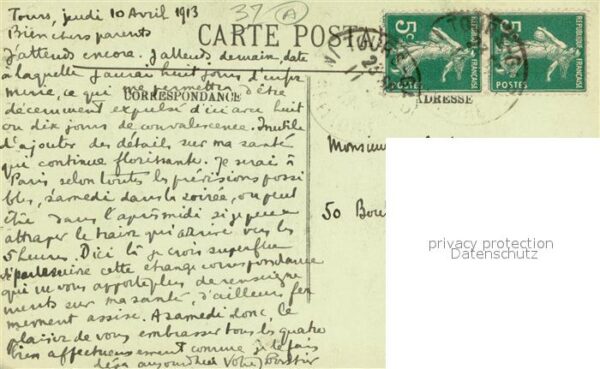 Tours, jeudi 10 Avril 1913
37 A
Bien chers parents
CARTE POSTALE
J'attends encore. J'attends demain, date
à laquelle j'aurai huit jours d'infir
merie, ce qui me permettra d'être
CORRESPONDANCE
ADRESSE
décemment expulsé d'ici avec huit
ou dix jours de convalescence. Inutile
d'ajouter des détails sur ma santé
qui continue florissante. Je serai à
Paris selon toutes les prévisions possi
bles, samedi dans la soirée, ou peut
être dans l'après midi si je peux
attraper le train qui arrive vers les
5 heures. D'ici là je crois superflue
cette étrange correspondance
qui ne vous apporte plus de renseigne
ments sur ma santé, d'ailleurs fer
mement assise. A samedi donc, le
plaisir de vous embrasser tous les quatre
bien affectueusement comme je le fais
déjà aujourd'hui Votre
Monsieur
50 Bou
5c
REPUBLIQUE FRANÇAISE
POSTES
5c
REPUBLIQUE FRANÇAISE
POSTES
TOURS
privacy protection
Datenschutz